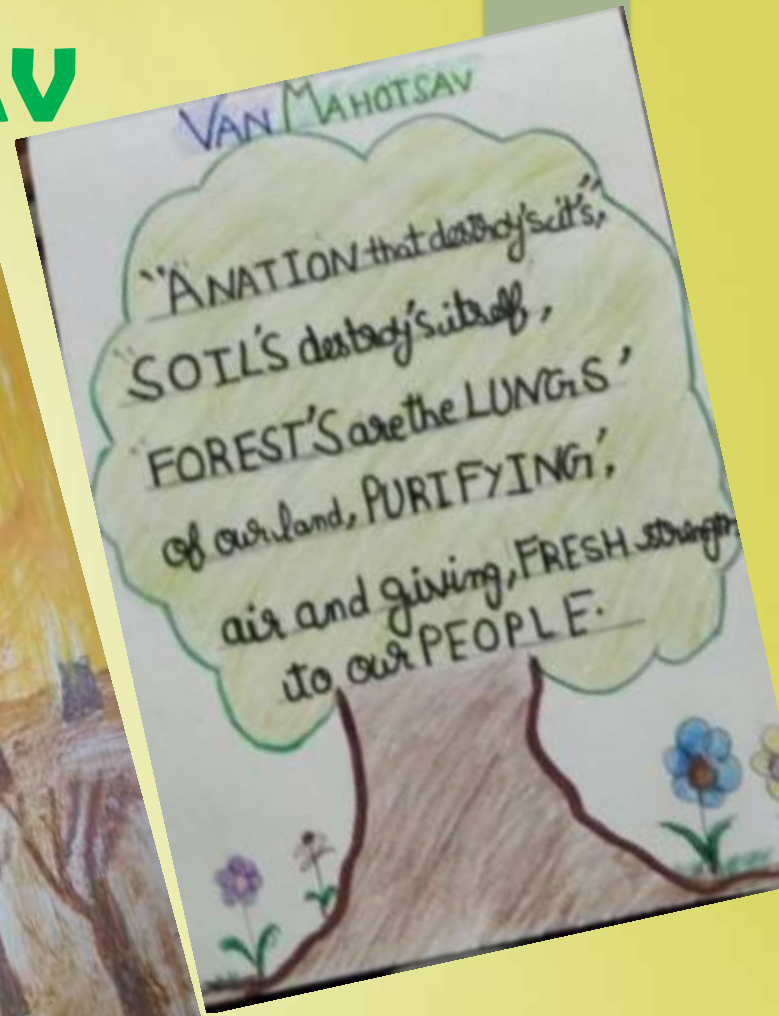 AV
VAN MAHOTSAV
"A NATION that destroy's it's,"
"SOIL'S destroy's itself,
"FOREST'S are the LUNGS'
of our land, PURIFYING',
air and giving, FRESH strength
to our PEOPLE.